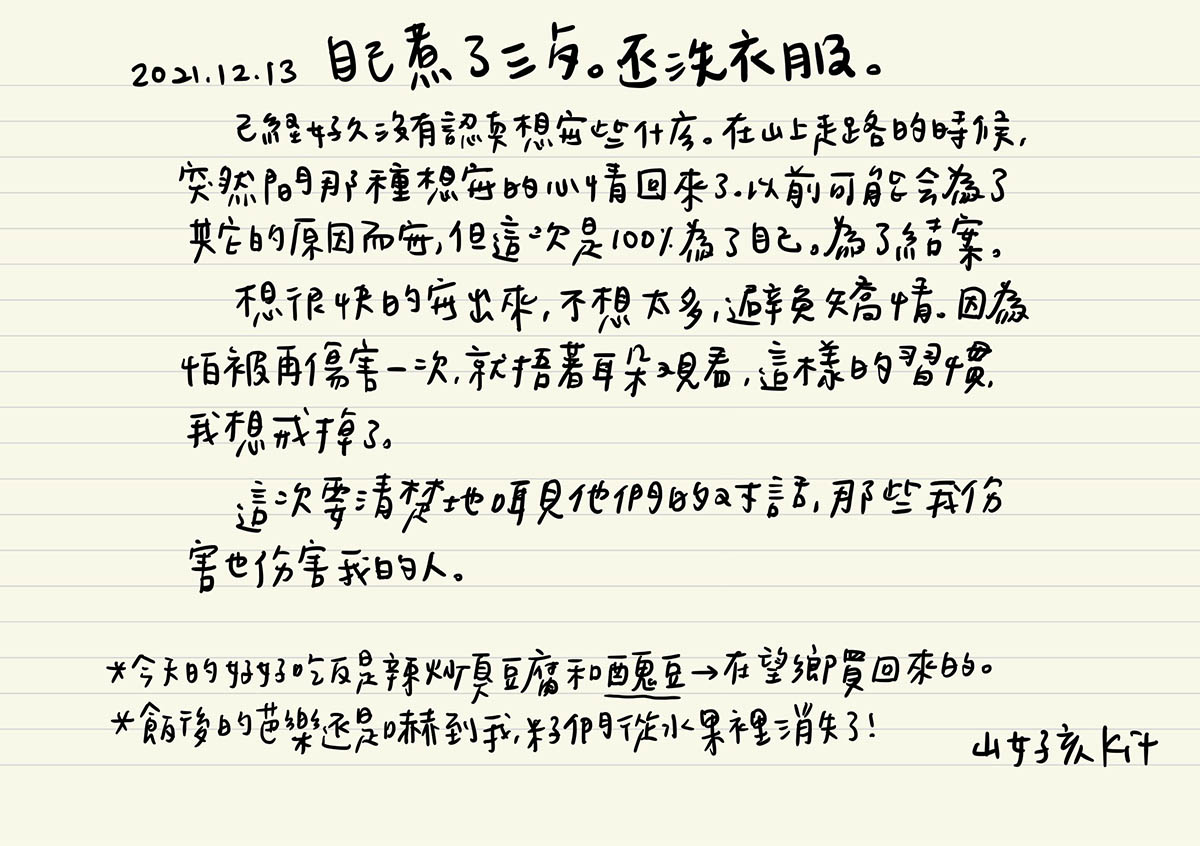 2021.12.13 自己煮了三歺。还洗衣服。
已經好久沒有認真想寫些什麼。在山上走路的時候，
突然間那種想寫的心情回來了.以前可能会為了
其它的原因而寫，但這次是100%為了自己。為了結案。
想很快的寫出來，不想太多，避免矯情。因為
怕被再傷害一次，就捂著耳朵观看，這樣的習慣，
我想戒掉了。
這次要清楚地听見他們的对話，那些我伤
害也伤害我的人。
*今天的好好吃饭是辣炒真豆腐和醜豆→在望鄉買回來的。
*飯後的芭樂还是嚇到我，籽們從水果裡消失了！
山女孩kit